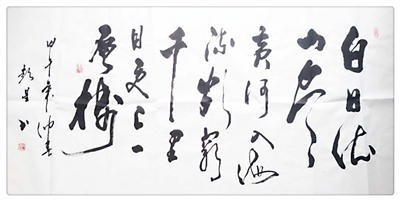 白日依
山尽
黄河入海
流欲穷
千里
目更上一
层楼
甲午年仲春
书